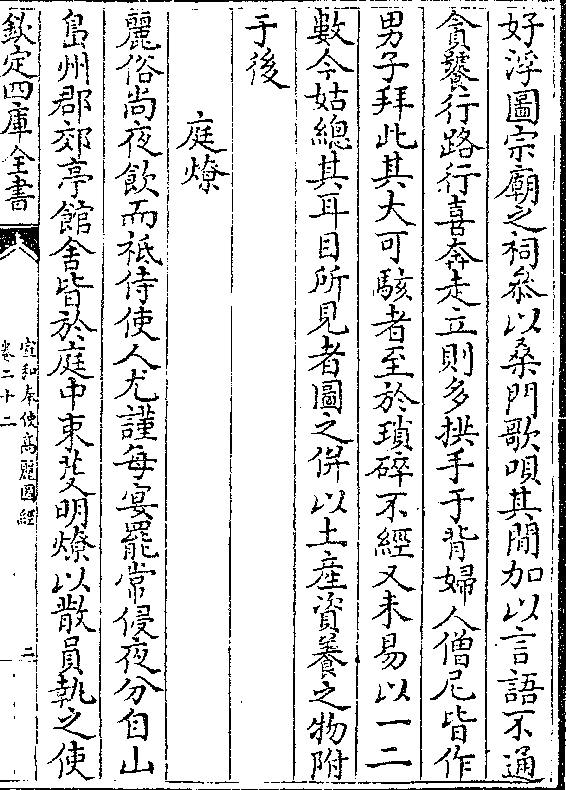 好浮圖宗廟之祠參以桑門歌唄其間加以言語不通
貪饕行路行喜奔走立則多拱手于背婦人僧尼皆作
男子拜此其大可駭者至於瑣碎不經又未易以一二
數今姑總其耳目所見者圖之併以土産資養之物附
于後
庭燎
麗俗尚夜飲而祇侍使人尤謹每宴罷常侵夜分自山
島州郡郊亭館舍皆於庭中束㸈明燎以散員執之使
欽定四庫全書
宣和奉使高麗圖經
卷二十二
二